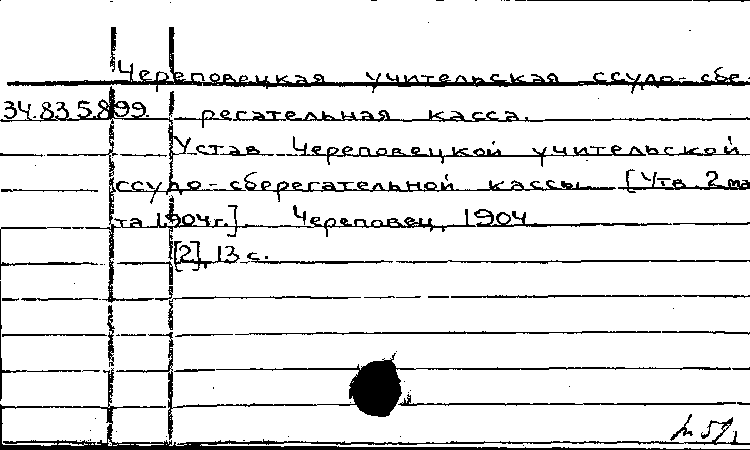 Череповецкая учительская ссудо-сбе-
34.83.5.899. регательная касса.
Устав Череповецкой учительской
ссудо-сберегательной кассы. [Утв. 2 ма
та 1904 г.]. Череповец, 1904
[2], 13 с.